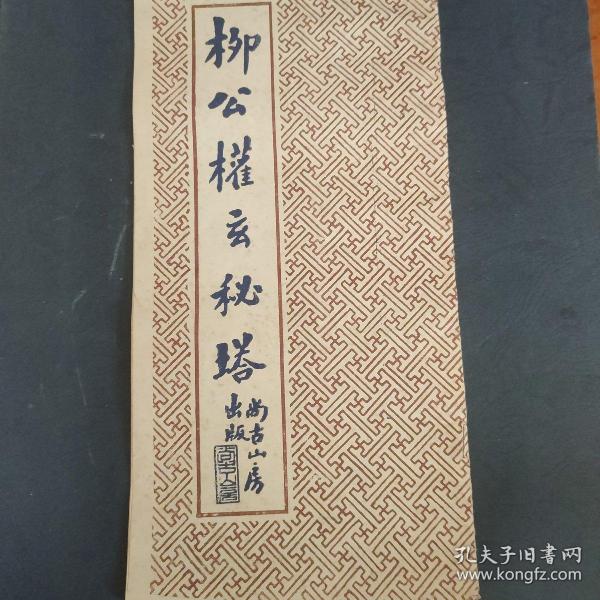 柳公權玄秘塔
尚古山房
出版
尚古山房
孔夫子旧书网
www.kongfz.com